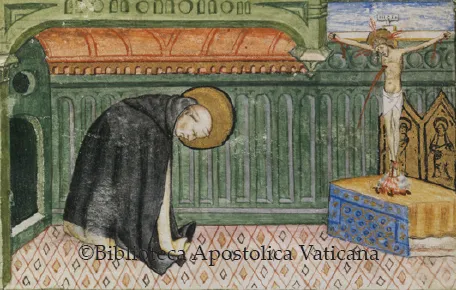 ©Biblioteca Apostolica Vaticana